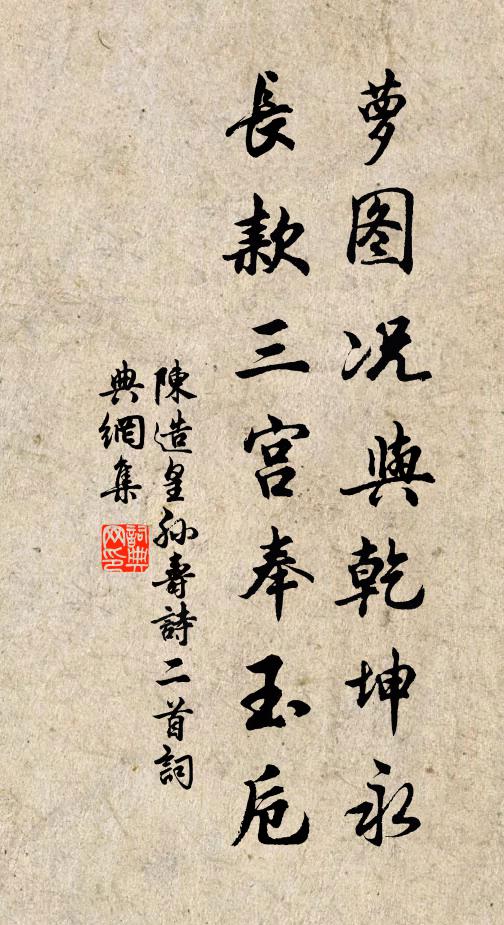 萝图况與乾坤永
長款三宫奉玉卮
陳造皇孙壽詩二首詞
典網集
詞典
网印